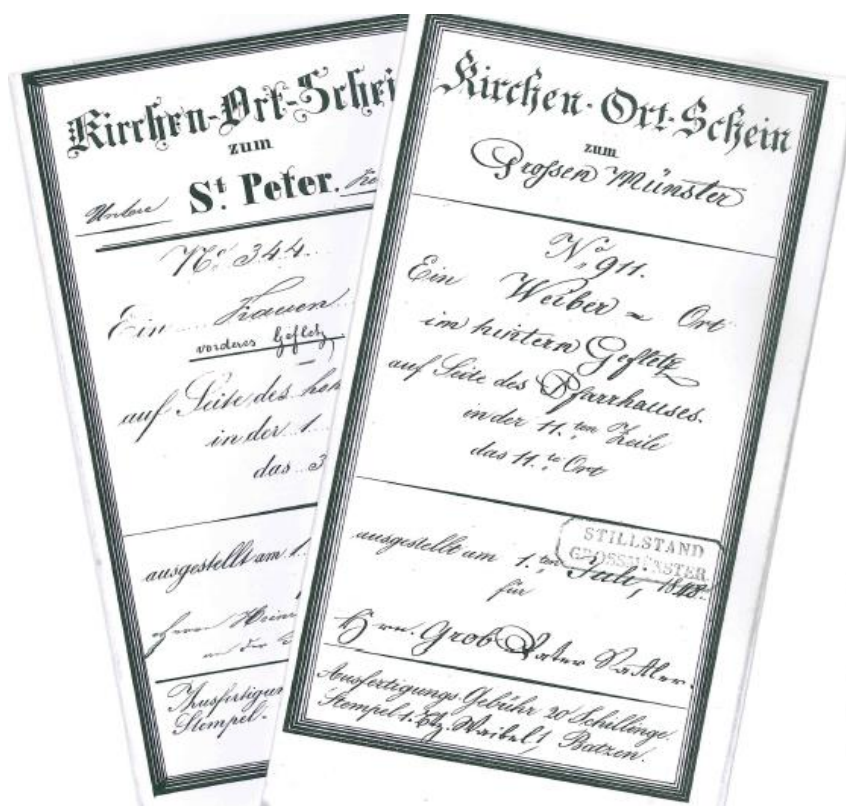 Kirchen-Ort-Schei
zum
Untere St. Peter.
No. 344.
Ein Frauen
vorderes Gefletz
auf Seite des hoh
in der 1.
das 3
ausgestellt am 1.
Herrn Heinr
an der
Ausfertigun
Stempel.
Kirchen-Ort-Schein
zum
Grossen Münster
No. 911.
Ein Weiber = Ort
im hintern Gefletz
auf Seite des Pfarrhauses.
in der 11.ten Zeile
das 11.te Ort
STILLSTAND
GROSSMÜNSTER
ausgestellt am 1.ten Juli, 1848.
für
Hrn. Grob Vater Sattler.
Ausfertigungs-Gebühr 20 Schillinge.
Stempel 1. Btz. Waibel 1 Batzen.